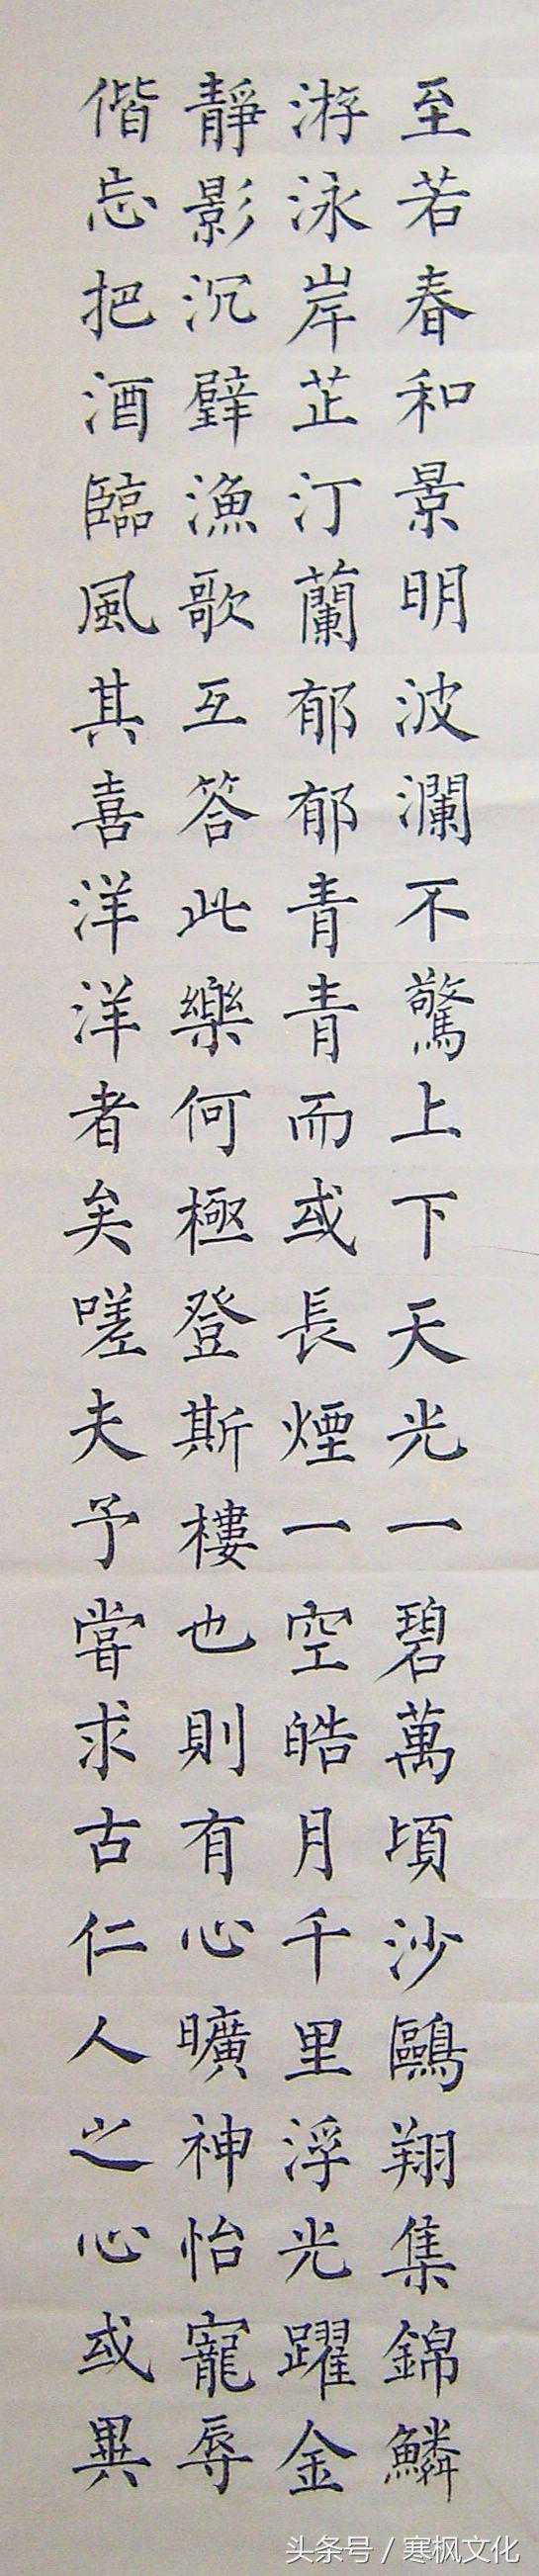 至若春和景明波瀾不驚上下天光一碧萬頃沙鷗翔集錦鱗
游泳岸芷汀蘭郁郁青青而或長煙一空皓月千里浮光躍金
靜影沉璧漁歌互答此樂何極登斯樓也則有心曠神怡寵辱
偕忘把酒臨風其喜洋洋者矣嗟夫予嘗求古仁人之心或異
头条号 / 寒枫文化